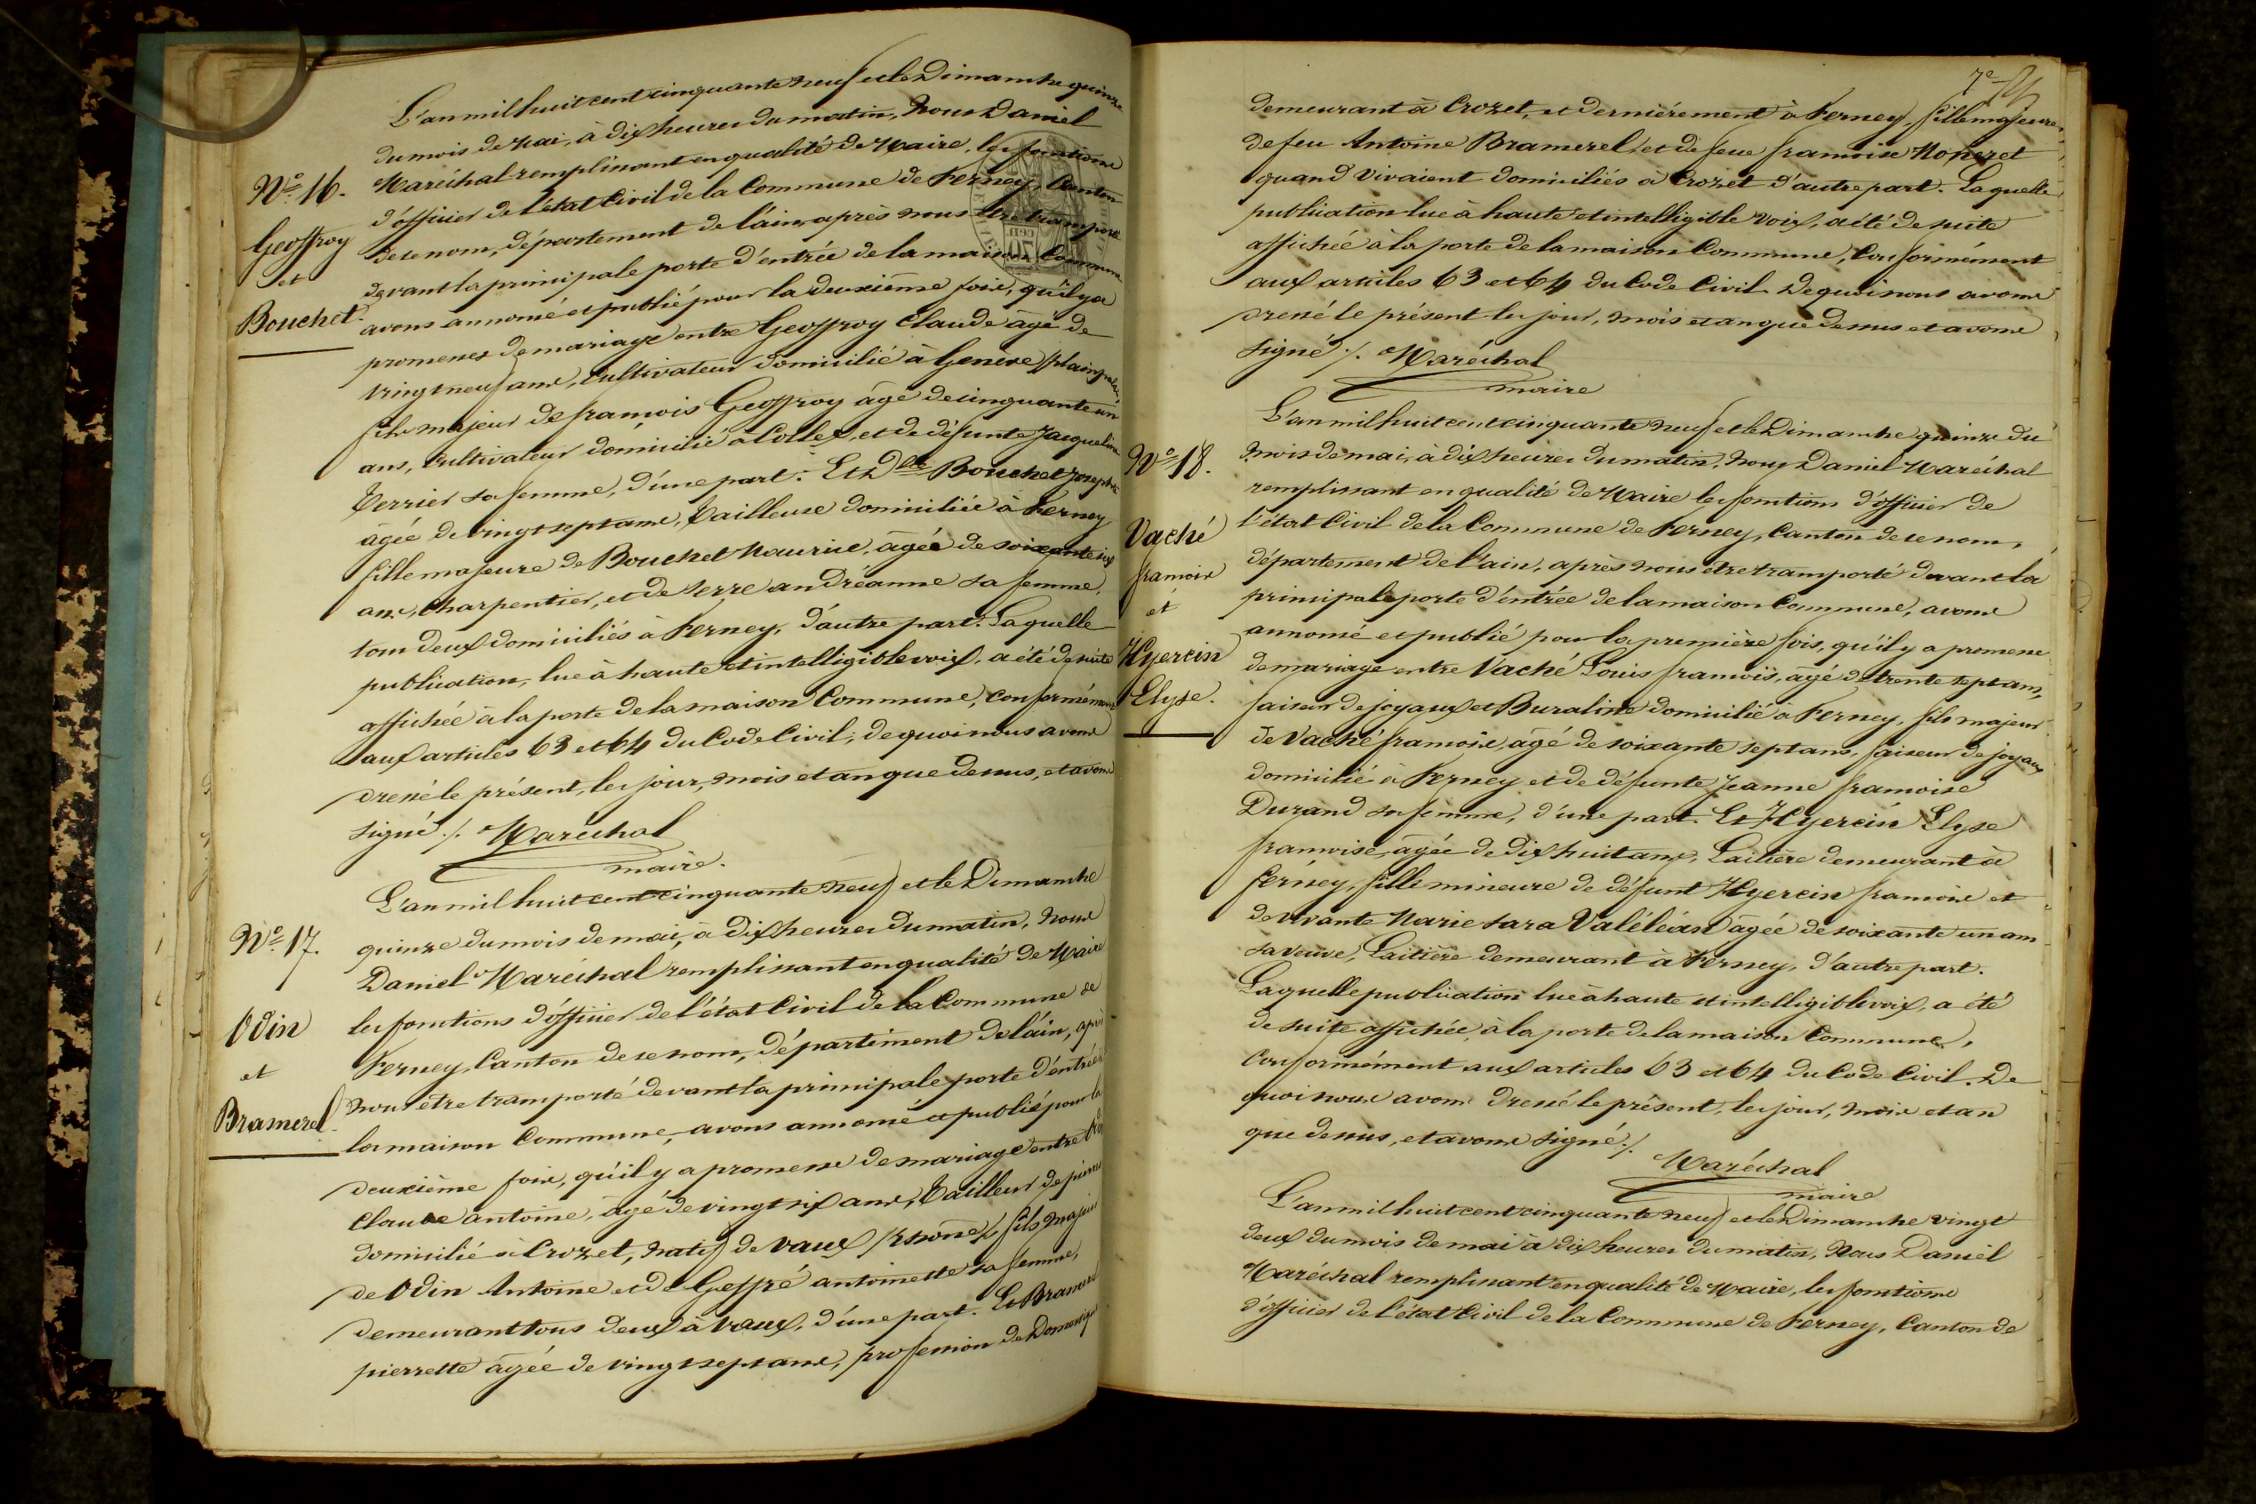 L'an mil huit cent cinquante neuf et le Dimanche quinze
du mois de Mai, à dix heures du matin, Nous Daniel
Maréchal remplissant en qualité de Maire, les fonctions
d'officier de l'état Civil de la Commune de Ferney, Canton
de ce nom, département de l'ain, après nous être transporté
devant la principale porte d'entrée de la maison Commune
avons annoncé et publié pour la deuxième fois, qu'il y a
promesses de mariage entre Geoffroy Claude âgé de
vingt neuf ans, cultivateur domicilié à Genève
fils majeur de françois Geoffroy âgé de cinquante un
ans, cultivateur domicilié à Collex, et de défunte Jacqueline
Terrier sa femme, d'une part. Et Dlle Bouchet Josephte
âgée de vingt sept ans, Tailleuse domiciliée à Ferney
fille majeure de Bouchet Maurice, âgée de soixante six
ans, charpentier, et de Serre andréanne sa femme,
tous deux domiciliés à Ferney, d'autre part. Laquelle
publication, lue à haute et intelligible voix, a été de suite
affichée à la porte de la maison Commune, conformément
aux articles 63 et 64 du Code Civil, de quoi nous avons
dressé le présent, les jour, mois et an que dessus, et avons
signé ./. Maréchal
maire.
N° 16.
Geoffroy
et
Bouchet.
L'an mil huit cent cinquante neuf et le Dimanche
quinze du mois de mai, à dix heures du matin, Nous
Daniel Maréchal remplissant en qualité de Maire
les fonctions d'officier de l'état Civil de la Commune de
Ferney, Canton de ce nom, département de l'ain, après
nous être transporté devant la principale porte d'entrée de
la maison Commune, avons annoncé et publié pour la
deuxième fois, qu'il y a promesse de mariage entre Odin
Claude antoine, âgé de vingt six ans, Tailleur de pierres
domicilié à Crozet, natif de Vaux (Rhône) fils majeur
de Odin Antoine et de Geffré antoinette sa femme,
demeurant tous deux à Vaux, d'une part. Et Bramerel
pierrette âgée de vingt sept ans, profession de Domestique
N° 17.
Odin
et
Bramerel.
7e
demeurant à Crozet, et dernièrement à Ferney, fille majeure
de feu Antoine Bramerel, et de feue françoise
quand vivaient domiciliés à Crozet d'autre part. Laquelle
publication lue à haute et intelligible voix, a été de suite
affichée à la porte de la maison Commune, Conformément
aux articles 63 et 64 du Code Civil. De quoi nous avons
dressé le présent les jour, mois et an que dessus et avons
signé ./. Maréchal
maire
L'an mil huit cent cinquante neuf et le Dimanche quinze du
mois de mai, à dix heures du matin, Nous Daniel Maréchal
remplissant en qualité de Maire les fonctions d'officier de
l'état Civil de la Commune de Ferney, Canton de ce nom,
département de l'ain, après nous être transporté devant la
principale porte d'entrée de la maison Commune, avons
annoncé et publié pour la première fois, qu'il y a promesse
de mariage entre Vaché Louis françois, âgé de trente sept ans,
faiseur de joyaux et Buraliste domicilié à Ferney, fils majeur
de Vaché françois âgé de soixante sept ans, faiseur de joyaux
domicilié à Ferney et de défunte Jeanne françoise
Durand sa femme, d'une part. Et Hyercin Elyse
françoise, âgée de dix huit ans, Laitière demeurant à
Ferney, fille mineure de défunt Hyercin françois et
de vivante Marie Sara Valéléan âgée de soixante un ans
sa veuve, Laitière demeurant à Ferney, d'autre part.
Laquelle publication lue à haute et intelligible voix, a été
de suite affichée, à la porte de la maison Commune,
Conformément aux articles 63 et 64 du Code Civil. De
quoi nous avons dressé le présent, les jour, mois et an
que dessus, et avons signé ./.
Maréchal
maire
N° 18.
Vaché
françois
et
Hyercin
Elyse.
L'an mil huit cent cinquante neuf et le Dimanche vingt
deux du mois de mai à dix heures du matin, Nous Daniel
Maréchal remplissant en qualité de Maire, les fonctions
d'officier de l'état Civil de la Commune de Ferney, Canton de